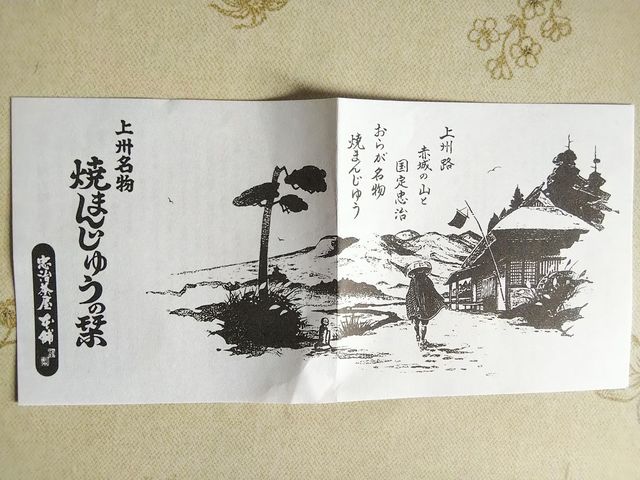 上州路
赤城の山と
国定忠治
おらが名物
焼まんじゅう
上州名物
焼まんじゅうの栞
忠治茶屋本舗